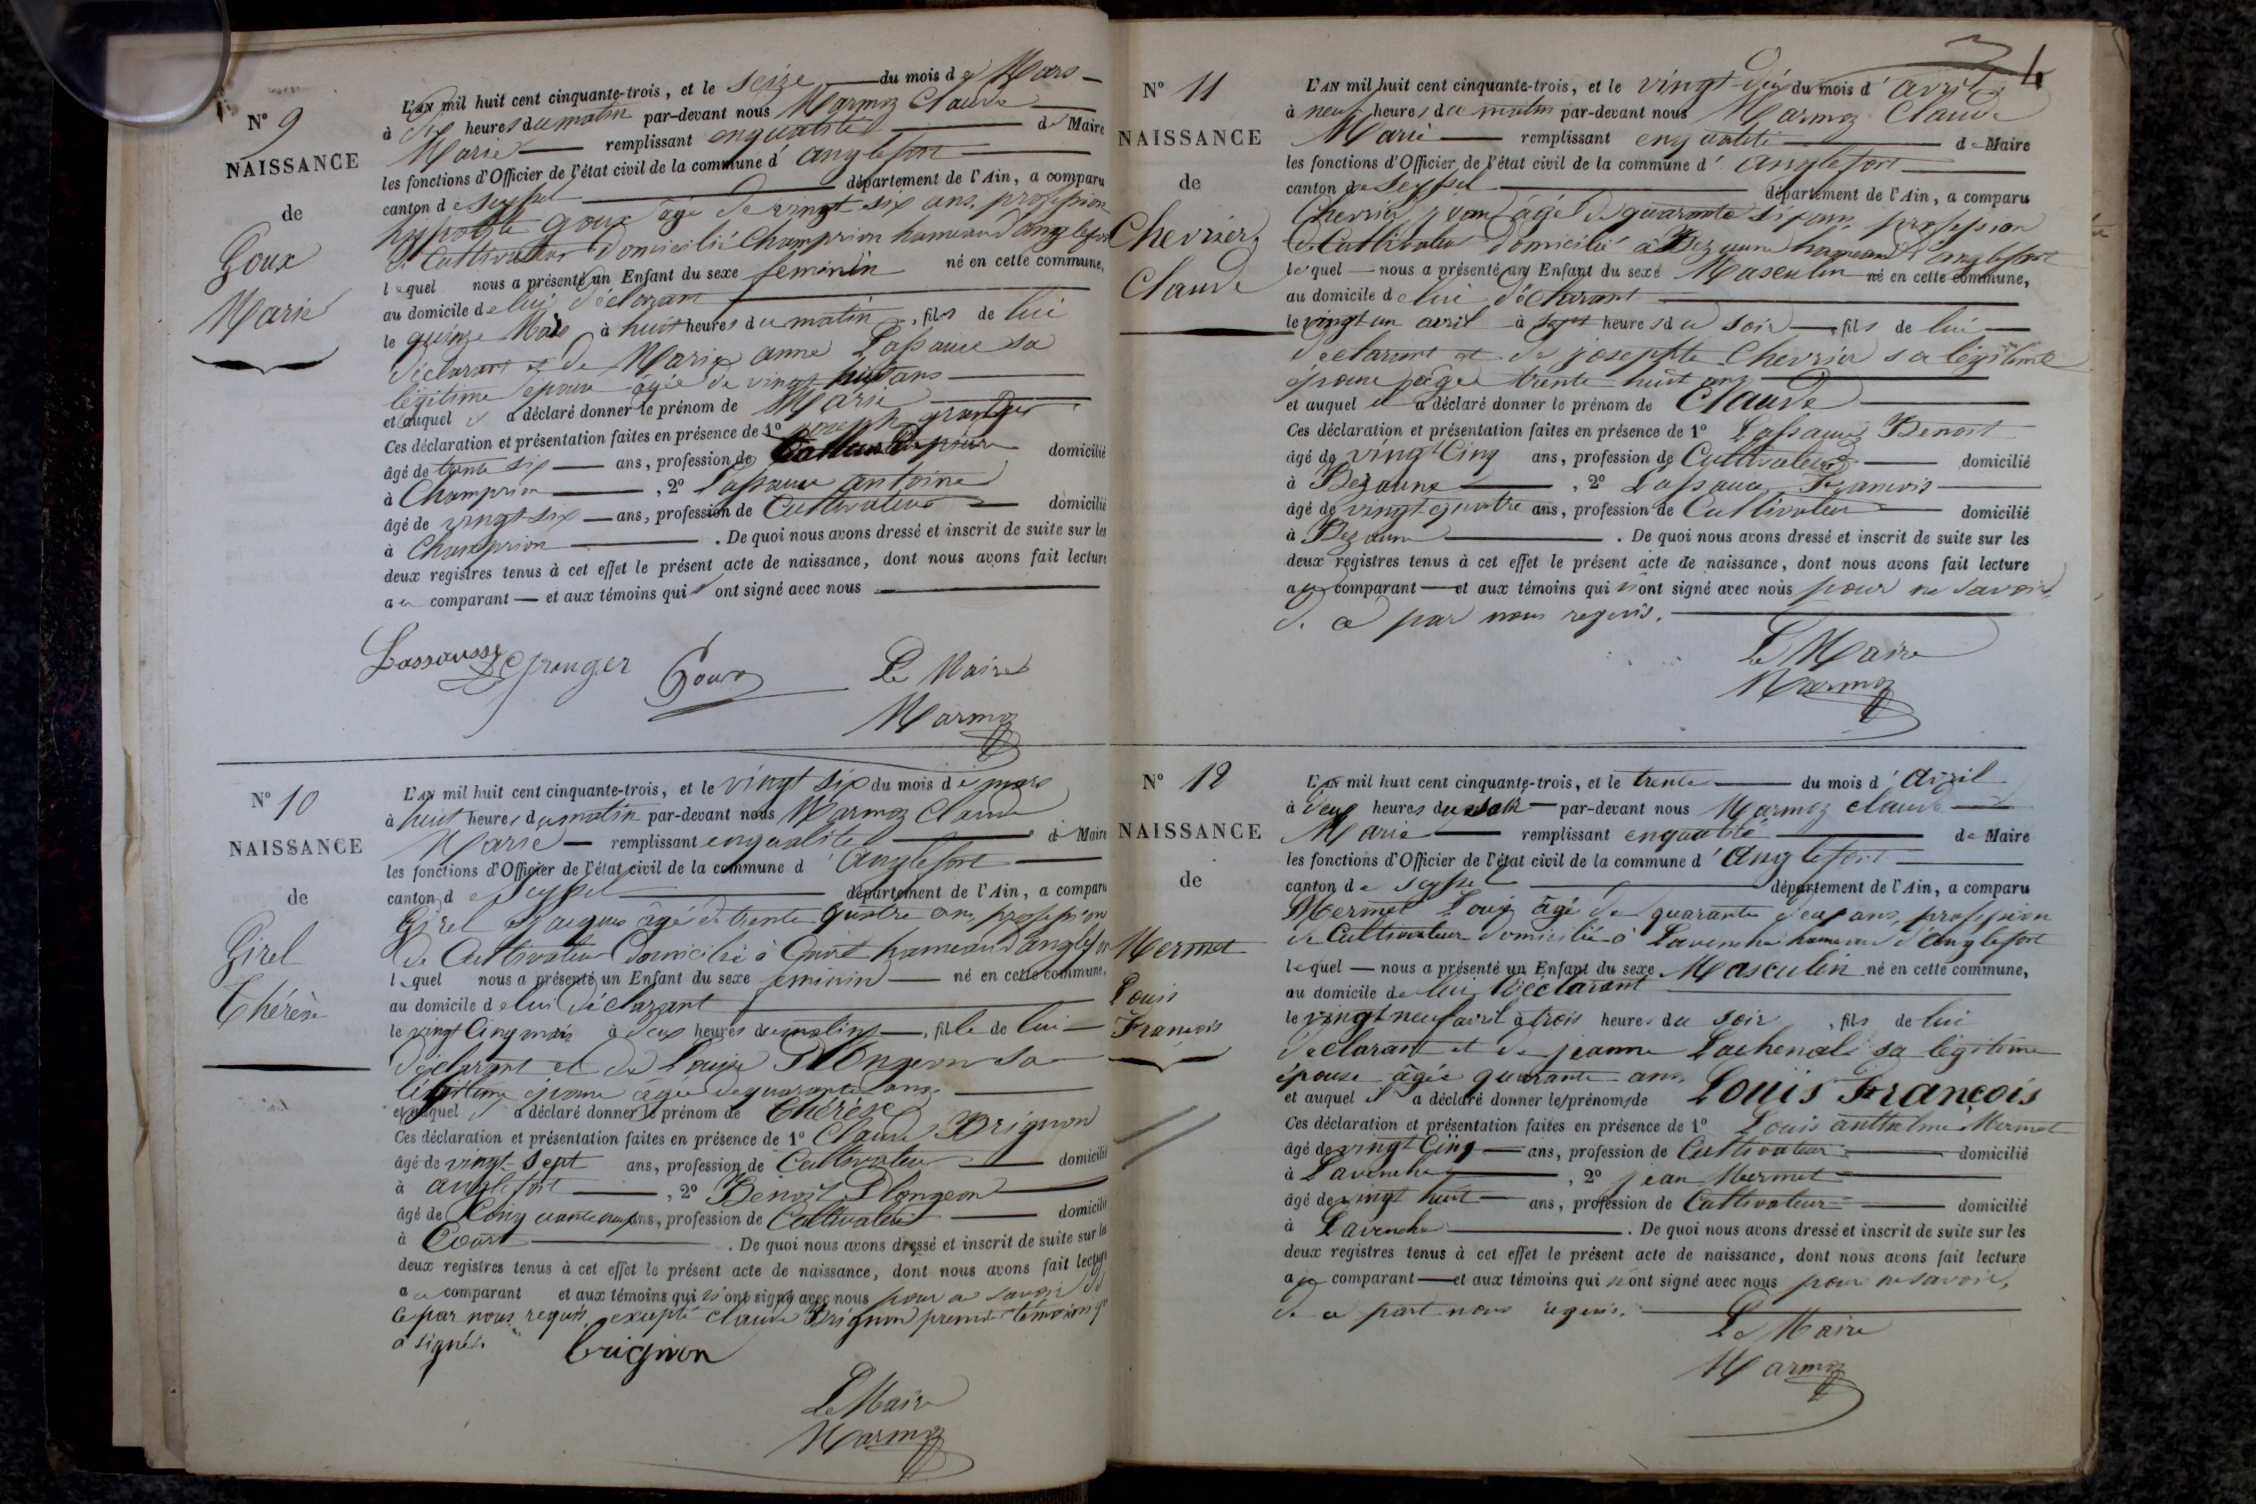 N° 9
NAISSANCE
de
Goux
Marie
L'AN mil huit cent cinquante-trois, et le seize du mois de Mars
à dix heures du matin par-devant nous Marmoz Claude
Marie remplissant en qualité de Maire
les fonctions d'Officier de l'état civil de la commune d'anglefort
canton de Seyssel département de l'Ain, a comparu
hyppolite Goux âgé de vingt six ans, profession
de Cultivateur domicilié Champrion hameau d'anglefort
lequel nous a présenté un Enfant du sexe feminin né en cette commune,
au domicile de lui déclarant
le quinze Mars à huit heures du matin, fils de lui
déclarant et de Marie anne Lassauce sa
légitime épouse âgée de vingt huit ans
et auquel il a déclaré donner le prénom de Marie
Ces déclaration et présentation faites en présence de 1° joseph granger
âgé de trente six ans, profession de domicilié
à Champrion, 2° Lassauce antoine
âgé de vingt six ans, profession de Cultivateur domicilié
à Champrion. De quoi nous avons dressé et inscrit de suite sur les
deux registres tenus à cet effet le présent acte de naissance, dont nous avons fait lecture
au comparant et aux témoins qui ont signé avec nous
Lassausse granger Goux Le Maire
Marmoz
N° 10
NAISSANCE
de
Girel
Thérèse
L'AN mil huit cent cinquante-trois, et le vingt six du mois de mars
à huit heures du matin par-devant nous Marmoz Claude
Marie remplissant en qualité de Maire
les fonctions d'Officier de l'état civil de la commune d'Anglefort
canton de Seyssel département de l'Ain, a comparu
Girel Jacques âgé de trente quatre ans, profession
de Cultivateur Domicilié à hameau d'anglefort
lequel nous a présenté un Enfant du sexe feminin né en cette commune,
au domicile de lui déclarant
le vingt Cinq mars à deux heures du matin, fille de lui
déclarant et de Louise Plongeon sa
légitime épouse âgée de quarante ans
et auquel a déclaré donner le prénom de Thérèse
Ces déclaration et présentation faites en présence de 1° Claude Brignon
âgé de vingt-sept ans, profession de Cultivateur domicilié
à anglefort, 2° Benoît Plongeon
âgé de ans, profession de Cultivateur domicilié
à. De quoi nous avons dressé et inscrit de suite sur les
deux registres tenus à cet effet le présent acte de naissance, dont nous avons fait lecture
au comparant et aux témoins qui n'ont signé avec nous pour ne savoir de
ce par nous requis, excepté claude Brignon premier témoin qui
a signé.
brignon
Le Maire
Marmoz
4
N° 11
NAISSANCE
de
Chevrier
Claude
L'AN mil huit cent cinquante-trois, et le vingt-deux du mois d'avril
à neuf heures du matin par-devant nous Marmoz Claude
Marie remplissant en qualité de Maire
les fonctions d'Officier de l'état civil de la commune d'anglefort
canton de Seyssel département de l'Ain, a comparu
Chevrier jean âgé de quarante six ans, profession
de Cultivateur domicilié à Bezaune hameau d'anglefort
lequel nous a présenté un Enfant du sexe Masculin né en cette commune,
au domicile de lui déclarant
le vingt un avril à sept heures du soir, fils de lui
déclarant et de josephte Chevrier sa légitime
épouse âgée trente huit ans
et auquel il a déclaré donner le prénom de Claude
Ces déclaration et présentation faites en présence de 1° Lassauce Benoit
âgé de vingt Cinq ans, profession de Cultivateur domicilié
à Bezaune, 2° Lassauce François
âgé de vingt quatre ans, profession de Cultivateur domicilié
à Bezaune. De quoi nous avons dressé et inscrit de suite sur les
deux registres tenus à cet effet le présent acte de naissance, dont nous avons fait lecture
au comparant et aux témoins qui n'ont signé avec nous pour ne savoir
de ce par nous requis.
Le Maire
Marmoz
N° 12
NAISSANCE
de
Mermet
Louis
François
L'AN mil huit cent cinquante-trois, et le trente du mois d'avril
à deux heures du soir par-devant nous Marmoz claude
Marie remplissant en qualité de Maire
les fonctions d'Officier de l'état civil de la commune d'Anglefort
canton de Seyssel département de l'Ain, a comparu
Mermet Louis âgé de quarante deux ans, profession
de Cultivateur domicilié à Lavenche hameau d'Anglefort
lequel nous a présenté un Enfant du sexe Masculin né en cette commune,
au domicile de lui Déclarant
le vingt neuf avril à trois heures du soir, fils de lui
déclarant et de jeanne Lachenal sa légitime
épouse âgée quarante ans
et auquel il a déclaré donner les prénoms de Louis François
Ces déclaration et présentation faites en présence de 1° Louis anthelme Mermet
âgé de vingt Cinq ans, profession de Cultivateur domicilié
à Lavenche, 2° jean Mermet
âgé de vingt huit ans, profession de Cultivateur domicilié
à Lavenche. De quoi nous avons dressé et inscrit de suite sur les
deux registres tenus à cet effet le présent acte de naissance, dont nous avons fait lecture
au comparant et aux témoins qui n'ont signé avec nous pour ne savoir,
de ce part nous requis.
Le Maire
Marmoz